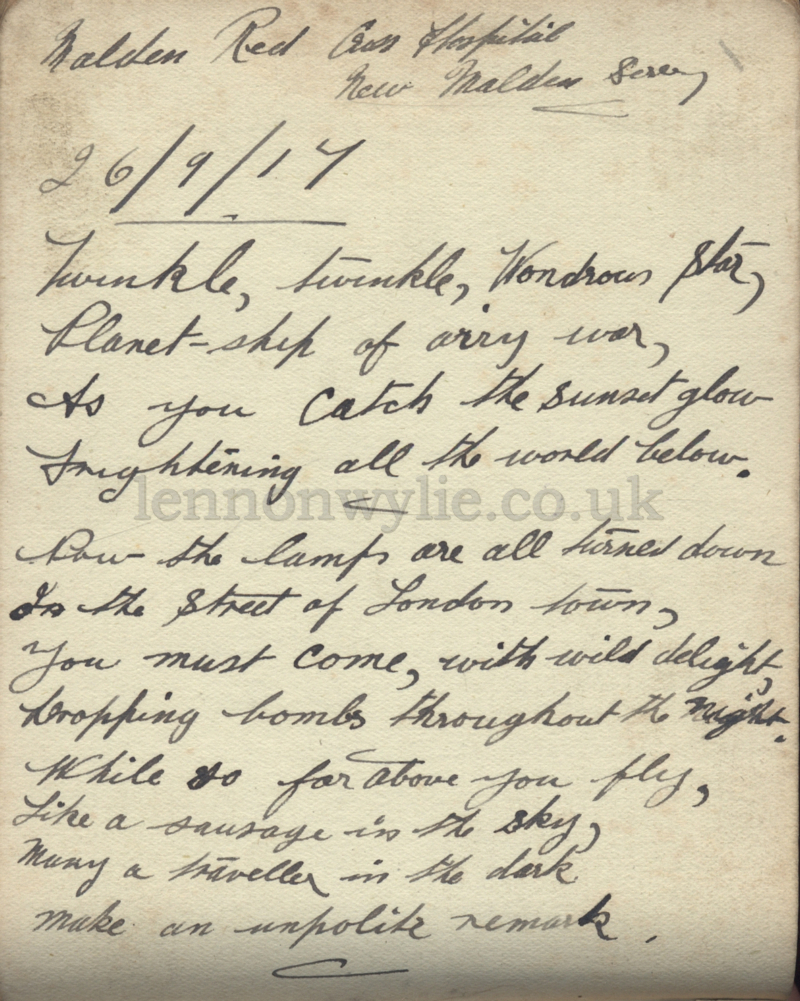 Malden Red Cross Hospital
New Malden Surrey
26/9/17
Twinkle, twinkle, Wondrous Star,
Planet-ship of airy war,
As you catch the sunset glow
Frightening all the world below.
lennonwylie.co.uk
Now the lamps are all turned down
In the Street of London town,
You must come, with wild delight,
Dropping bombs throughout the Night.
While so far above you fly,
Like a sausage in the sky,
Many a traveller in the dark
Make an unpolite remark.